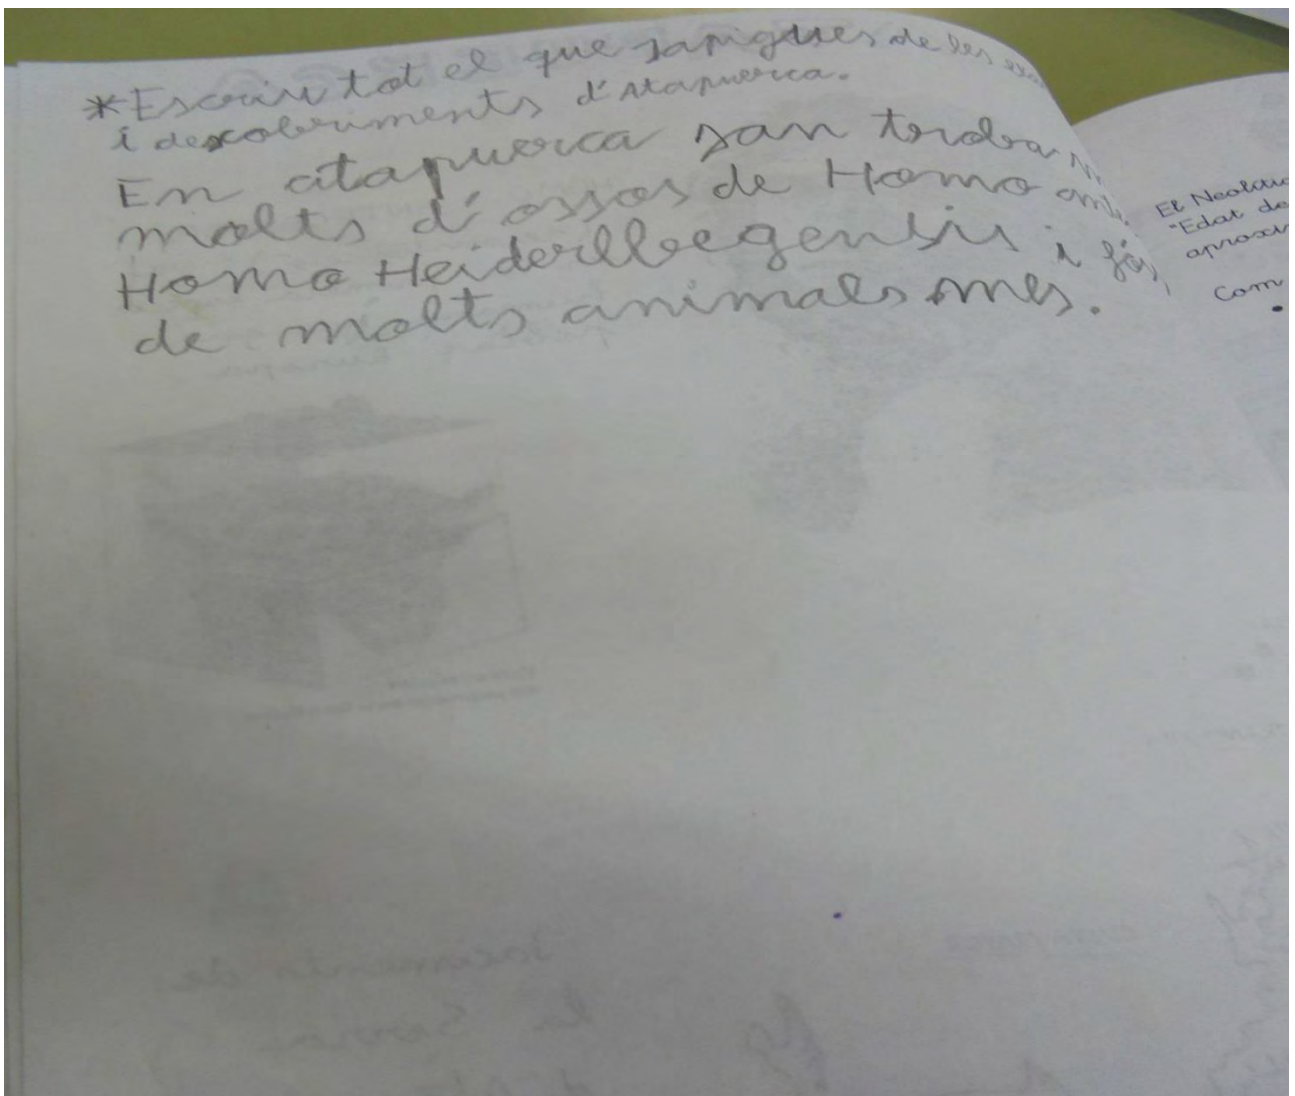 *Escriu tot el que sapigues de les
i descobriments d'Atapuerca.
En atapuerca san troba
molts d'ossos de Homo
Homo Heiderllbegensis i
de molts animals mes.
El
"Edat de
Com
•